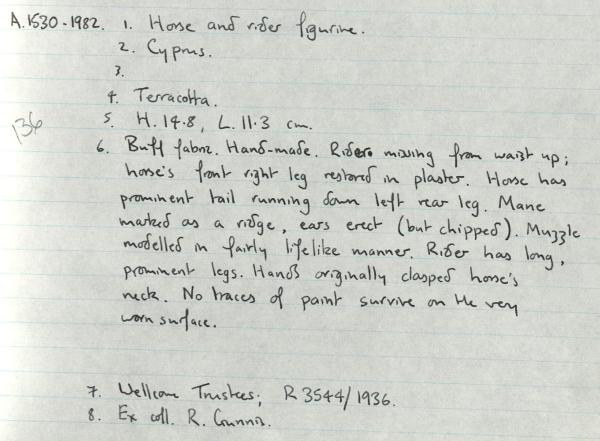 A.1530-1982. 1. Horse and rider figurine.
2. Cyprus.
3.
4. Terracotta.
136
5. H. 14.8, L. 11.3 cm.
6. Buff fabric. Hand-made. Rider missing from waist up;
horse's front right leg restored in plaster. Horse has
prominent tail running down left rear leg. Mane
marked as a ridge, ears erect (but chipped). Muzzle
modelled in fairly lifelike manner. Rider has long,
prominent legs. Hands originally clasped horse's
neck. No traces of paint survive on the very
worn surface.
7. Wellcome Trustees; R 3544/1936.
8. Ex coll. R. Gunnis.